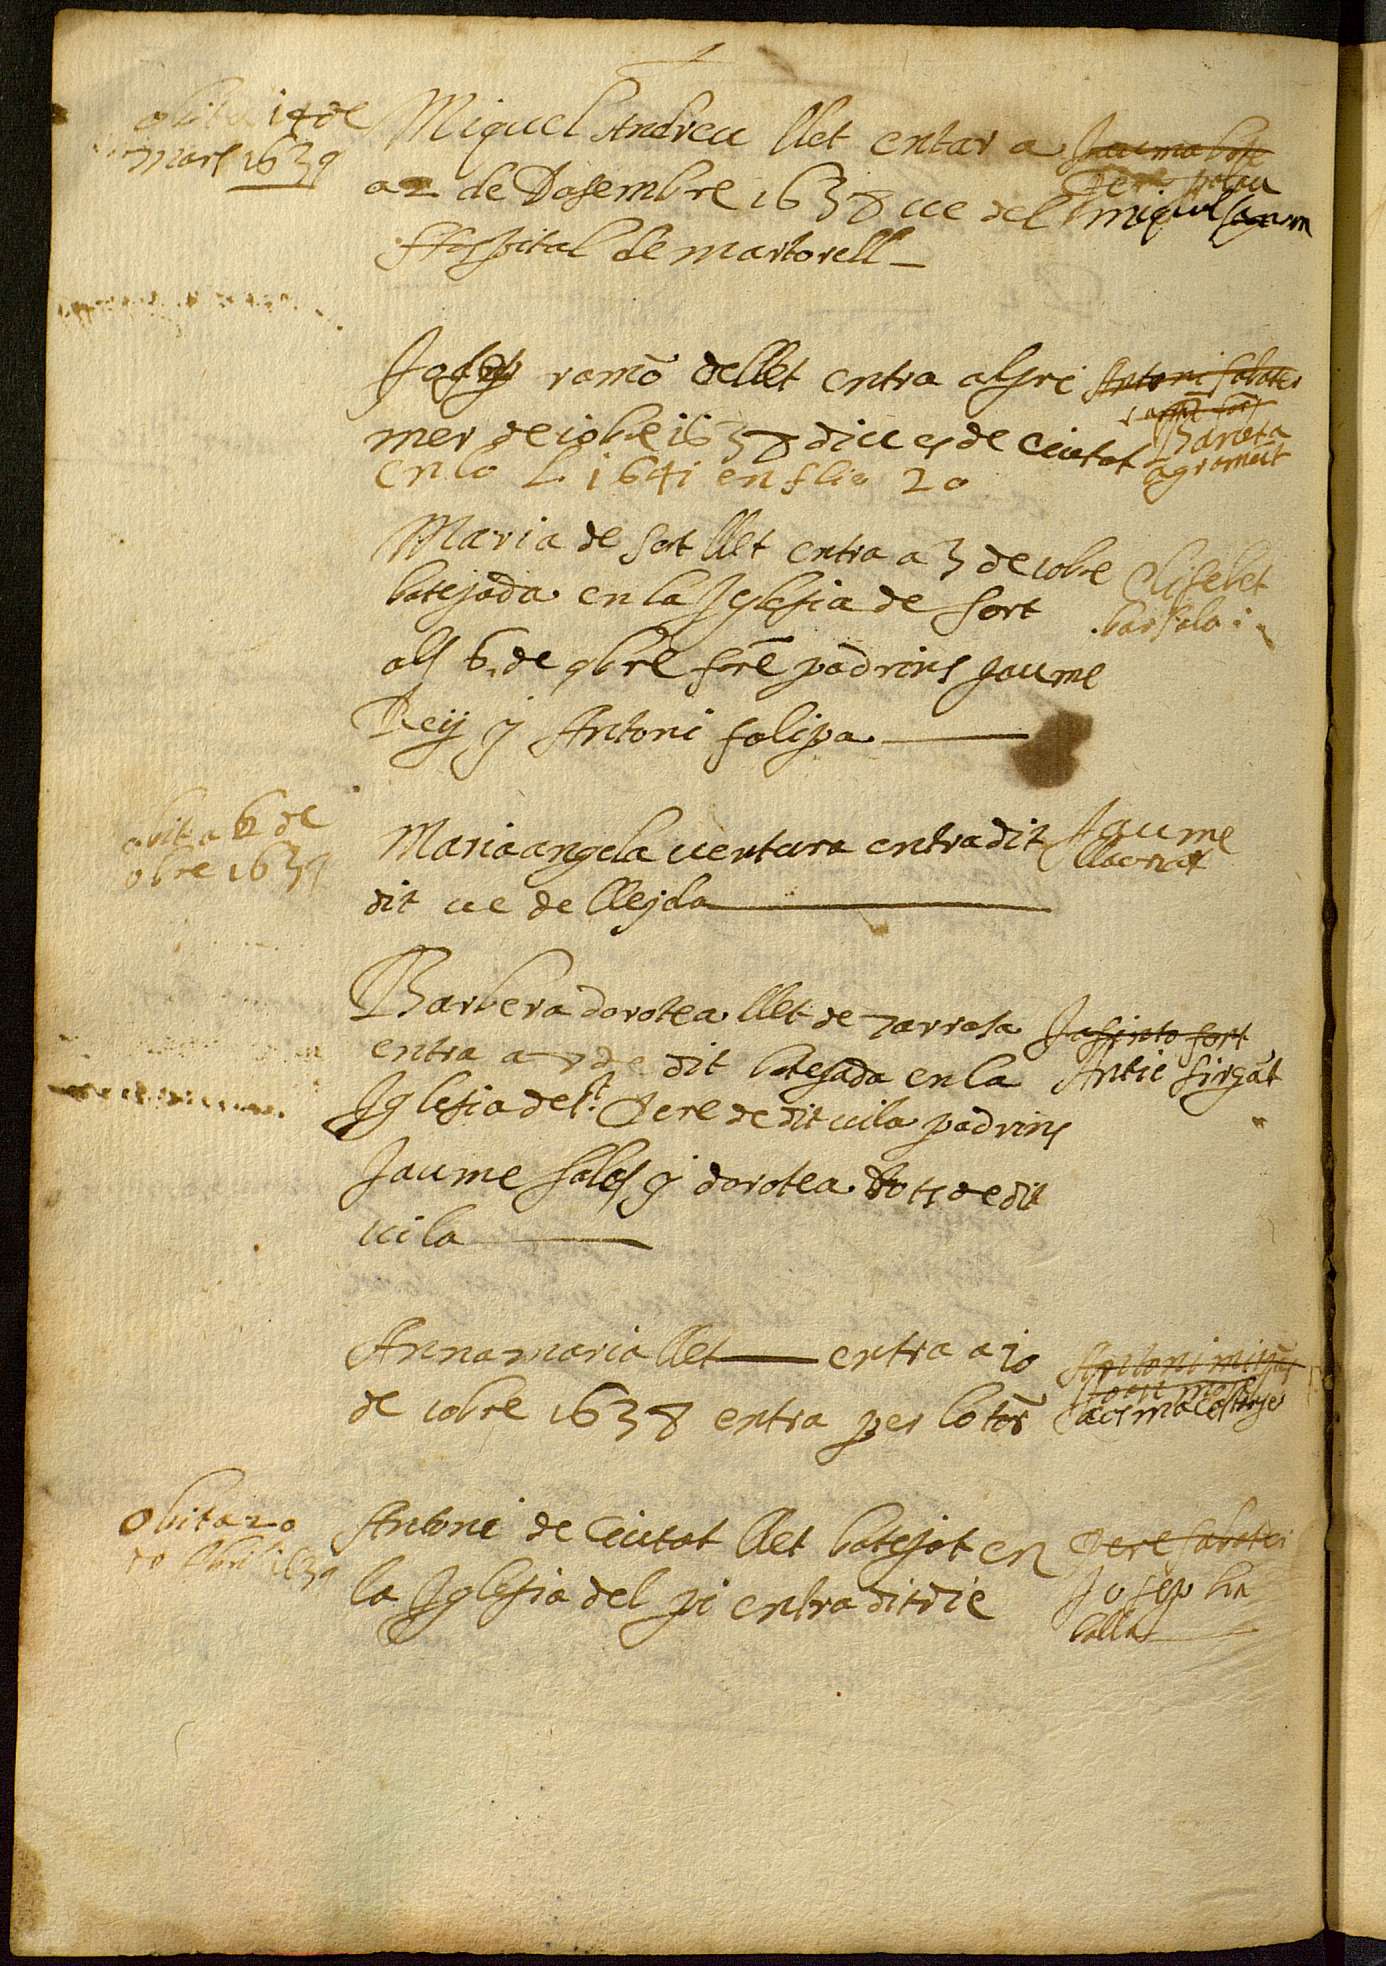 obit a 14 de
mars 1639
Miquel Andreu llet entar a
a 2 de Dasembre 1638 ve del
Hospital de martorell
Jauma
Pere palau
miquel
Josep ramõ de llet entra als pri
mer de iobre 1638 diu es de Ciutat
en lo L. 1641 en flio 20
Antoni sabater
Bãneta
agramũt
Maria de sort llet entra a 3 de iobre
batejada en la Iglesia de sort
als 6 de 9bre forẽ padrins jaume
Rey y Antoni folipa
Elisebet
barsalo
obit a 6 de
obre 1639
Maria angela ventura entra dit
dit ve de lleyda
Jaume
Barbera dorotea llet de tarrasa
entra a de dit batejada en la
Iglesia de St. Pere de dit vila padrins
Jaume salas y dorotea de dit
vila
Jasinto fort
Antic sirgãt
Anna maria llet entra a 10
de iobre 1638 entra per lo torñ
Antoni mitjãs
Obit a 20
de Abril 1639
Antoni de Ciutat llet batejat en
la Iglesia del pi entra dit die
Pere sabater
Josep